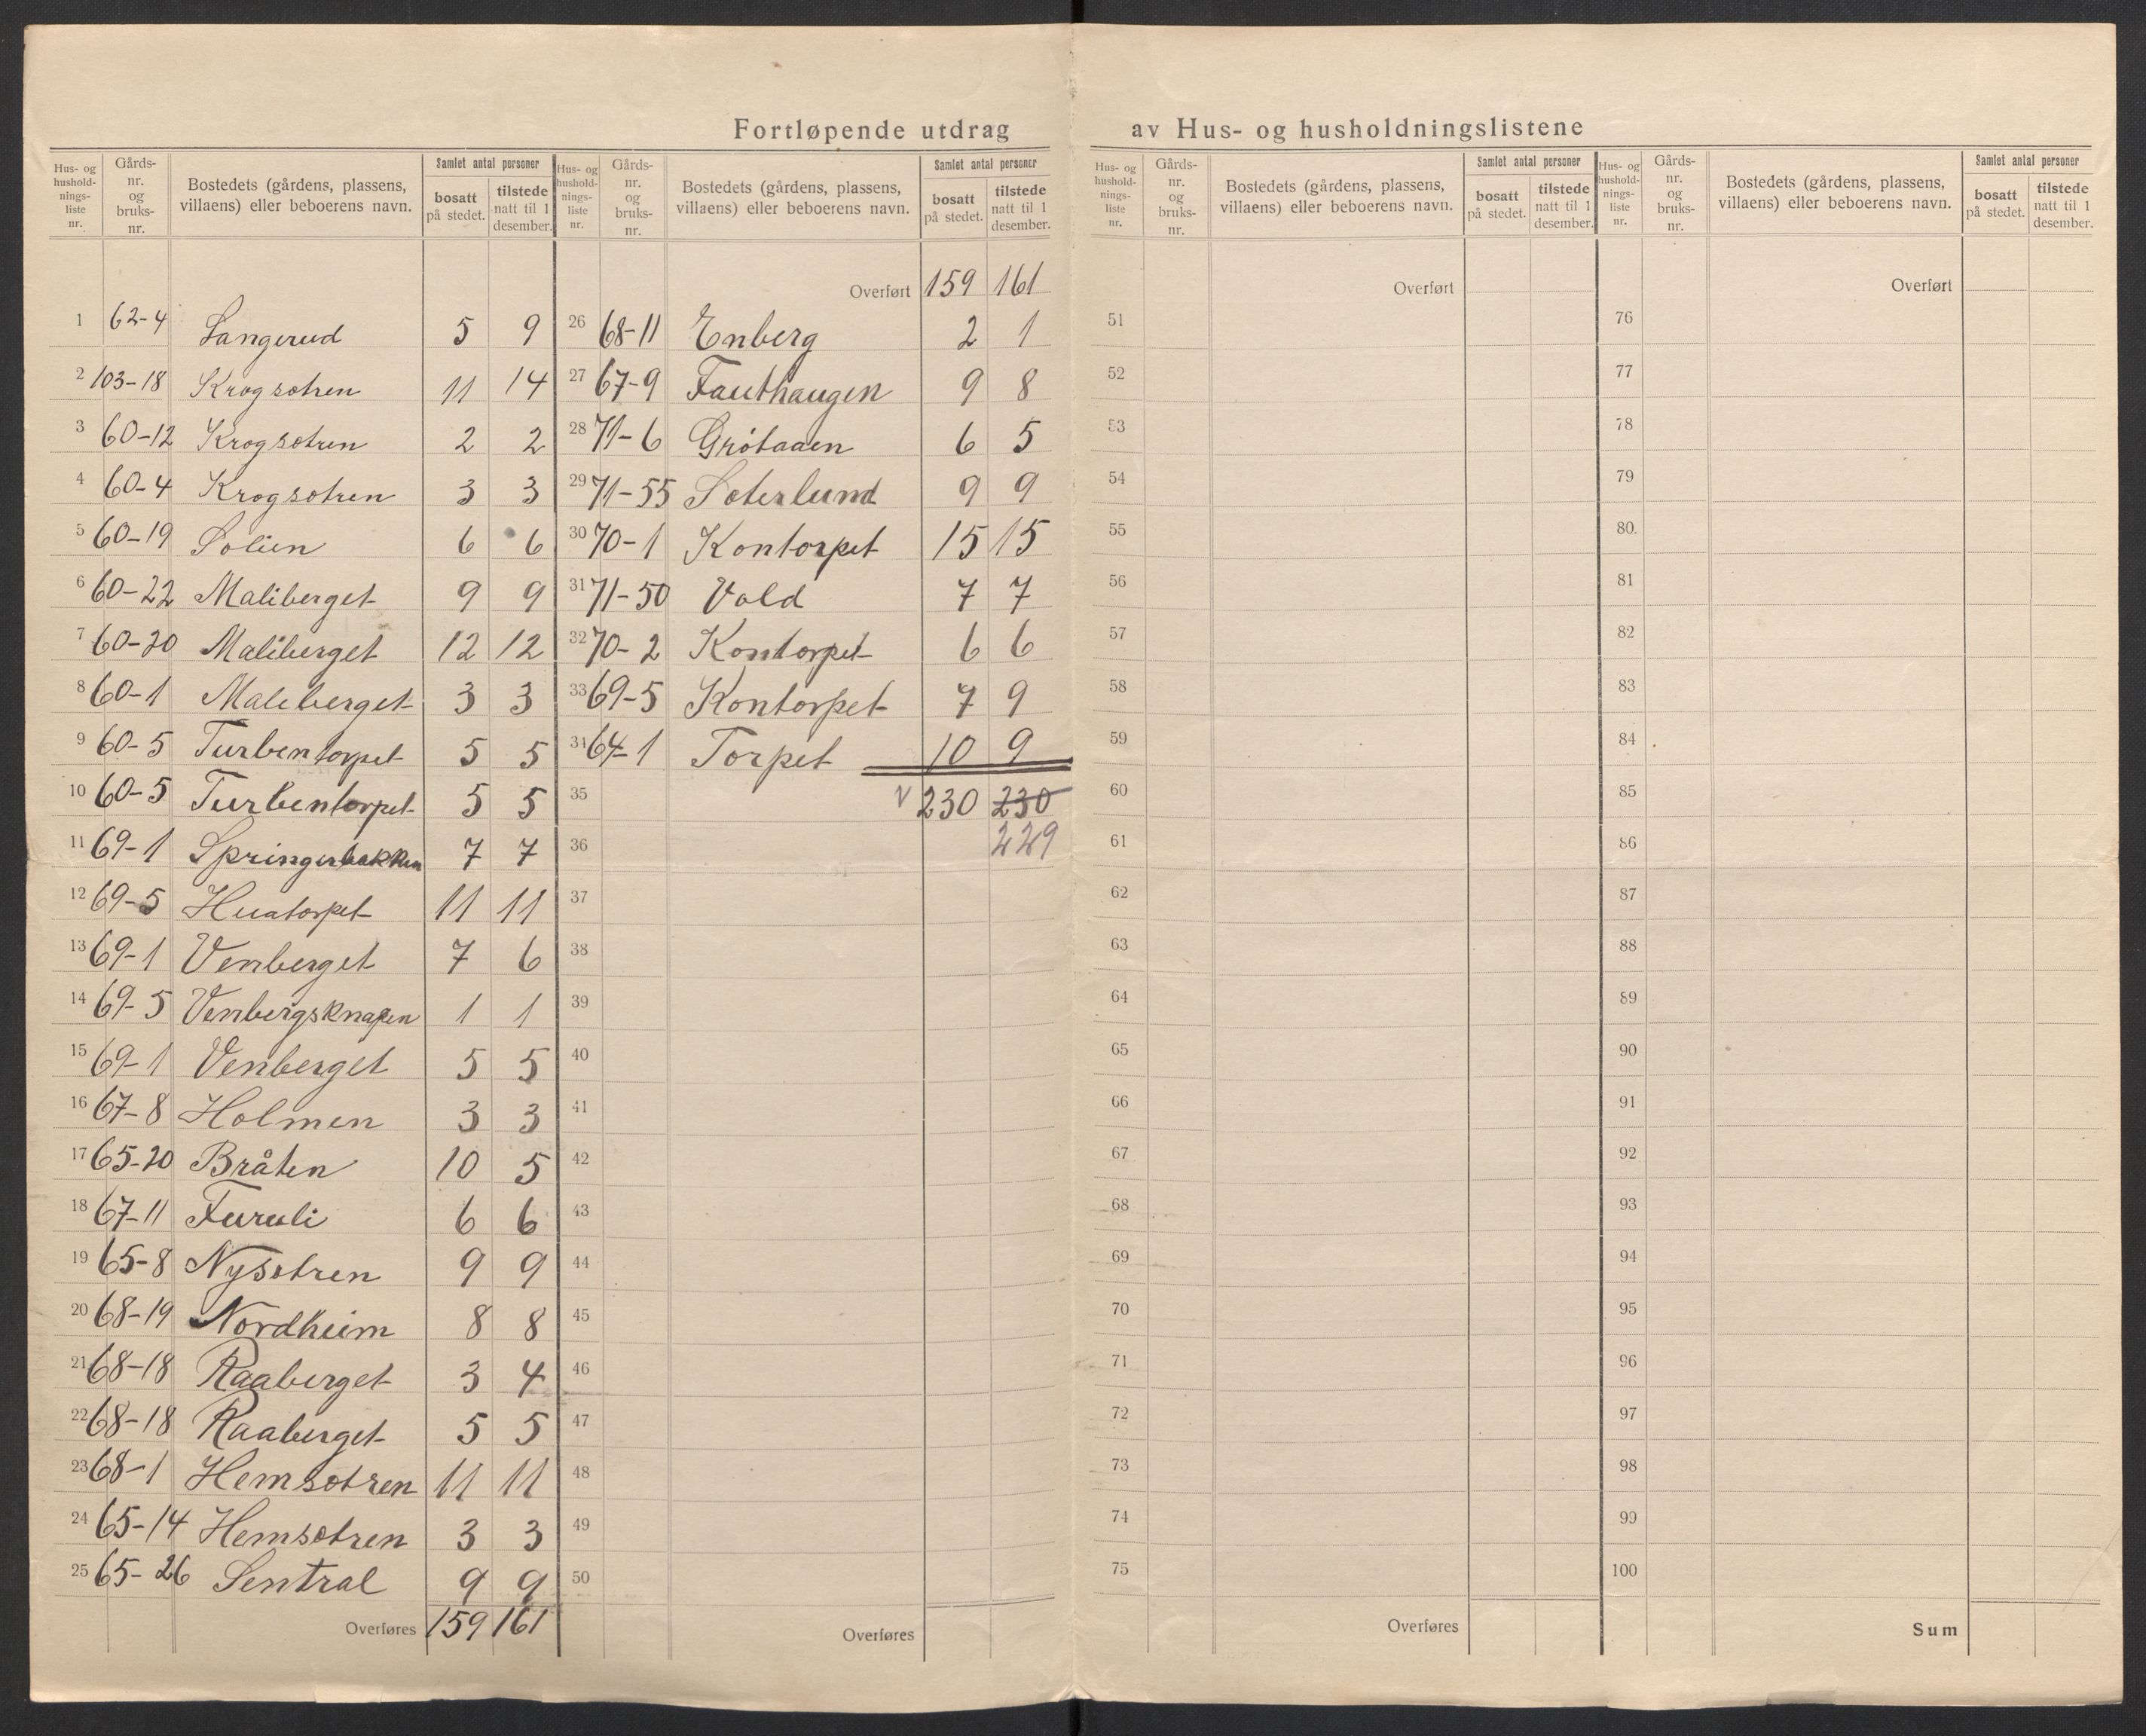 Fortløpende utdrag av Hus- og husholdningslistene
Hus- og hushold-nings-liste nr. Gårds-nr. og bruks-nr. Bostedets (gårdens, plassens, villaens) eller beboerens navn. Samlet antal personer bosatt på stedet. tilstede natt til 1 desember.
1 62-4 Langerud 5 9
2 103-18 Krogsotren 11 14
3 60-12 Krogsotren 2 2
4 60-4 Krogsotren 3 3
5 60-19 Solien 6 6
6 60-22 Maliberget 9 9
7 60-20 Maliberget 12 12
8 60-1 Maleberget 3 3
9 60-5 Turbentorpet 5 5
10 60-5 Turbentorpet 5 5
11 69-1 Springerbakken 7 7
12 69-5 Huatorpet 11 11
13 69-1 Venberget 7 6
14 69-5 Venbergsknapen 1 1
15 69-1 Venberget 5 5
16 67-8 Holmen 3 3
17 65-20 Bråten 10 5
18 67-11 Furuli 6 6
19 65-8 Nysetren 9 9
20 68-19 Nordheim 8 8
21 68-18 Raaberget 3 4
22 68-18 Raaberget 5 5
23 68-1 Hemsotren 11 11
24 65-14 Hemsetren 3 3
25 65-26 Sentral 9 9
Overføres 159 161
Hus- og hushold-nings-liste nr. Gårds-nr. og bruks-nr. Bostedets (gårdens, plassens, villaens) eller beboerens navn. Samlet antal personer bosatt på stedet. tilstede natt til 1 desember.
Overført 159 161
26 68-11 Enberg 2 1
27 67-9 Fauthaugen 9 8
28 71-6 Grötaaen 6 5
29 71-55 Soterlund 9 9
30 70-1 Kontorpet 15 15
31 71-50 Vold 7 7
32 70-2 Kontorpet 6 6
33 69-5 Kontorpet 7 9
34 64-1 Torpet 10 9
35 v 230 230
36 229
37
38
39
40
41
42
43
44
45
46
47
48
49
50
Overføres
Hus- og hushold-nings-liste nr. Gårds-nr. og bruks-nr. Bostedets (gårdens, plassens, villaens) eller beboerens navn. Samlet antal personer bosatt på stedet. tilstede natt til 1 desember.
Overført
51
52
53
54
55
56
57
58
59
60
61
62
63
64
65
66
67
68
69
70
71
72
73
74
75
Overføres
Hus- og hushold-nings-liste nr. Gårds-nr. og bruks-nr. Bostedets (gårdens, plassens, villaens) eller beboerens navn. Samlet antal personer bosatt på stedet. tilstede natt til 1 desember.
Overført
76
77
78
79
80.
81
82
83
84
85
86
87
88
89
90
91
92
93
94
95
96
97
98
99
100
Sum